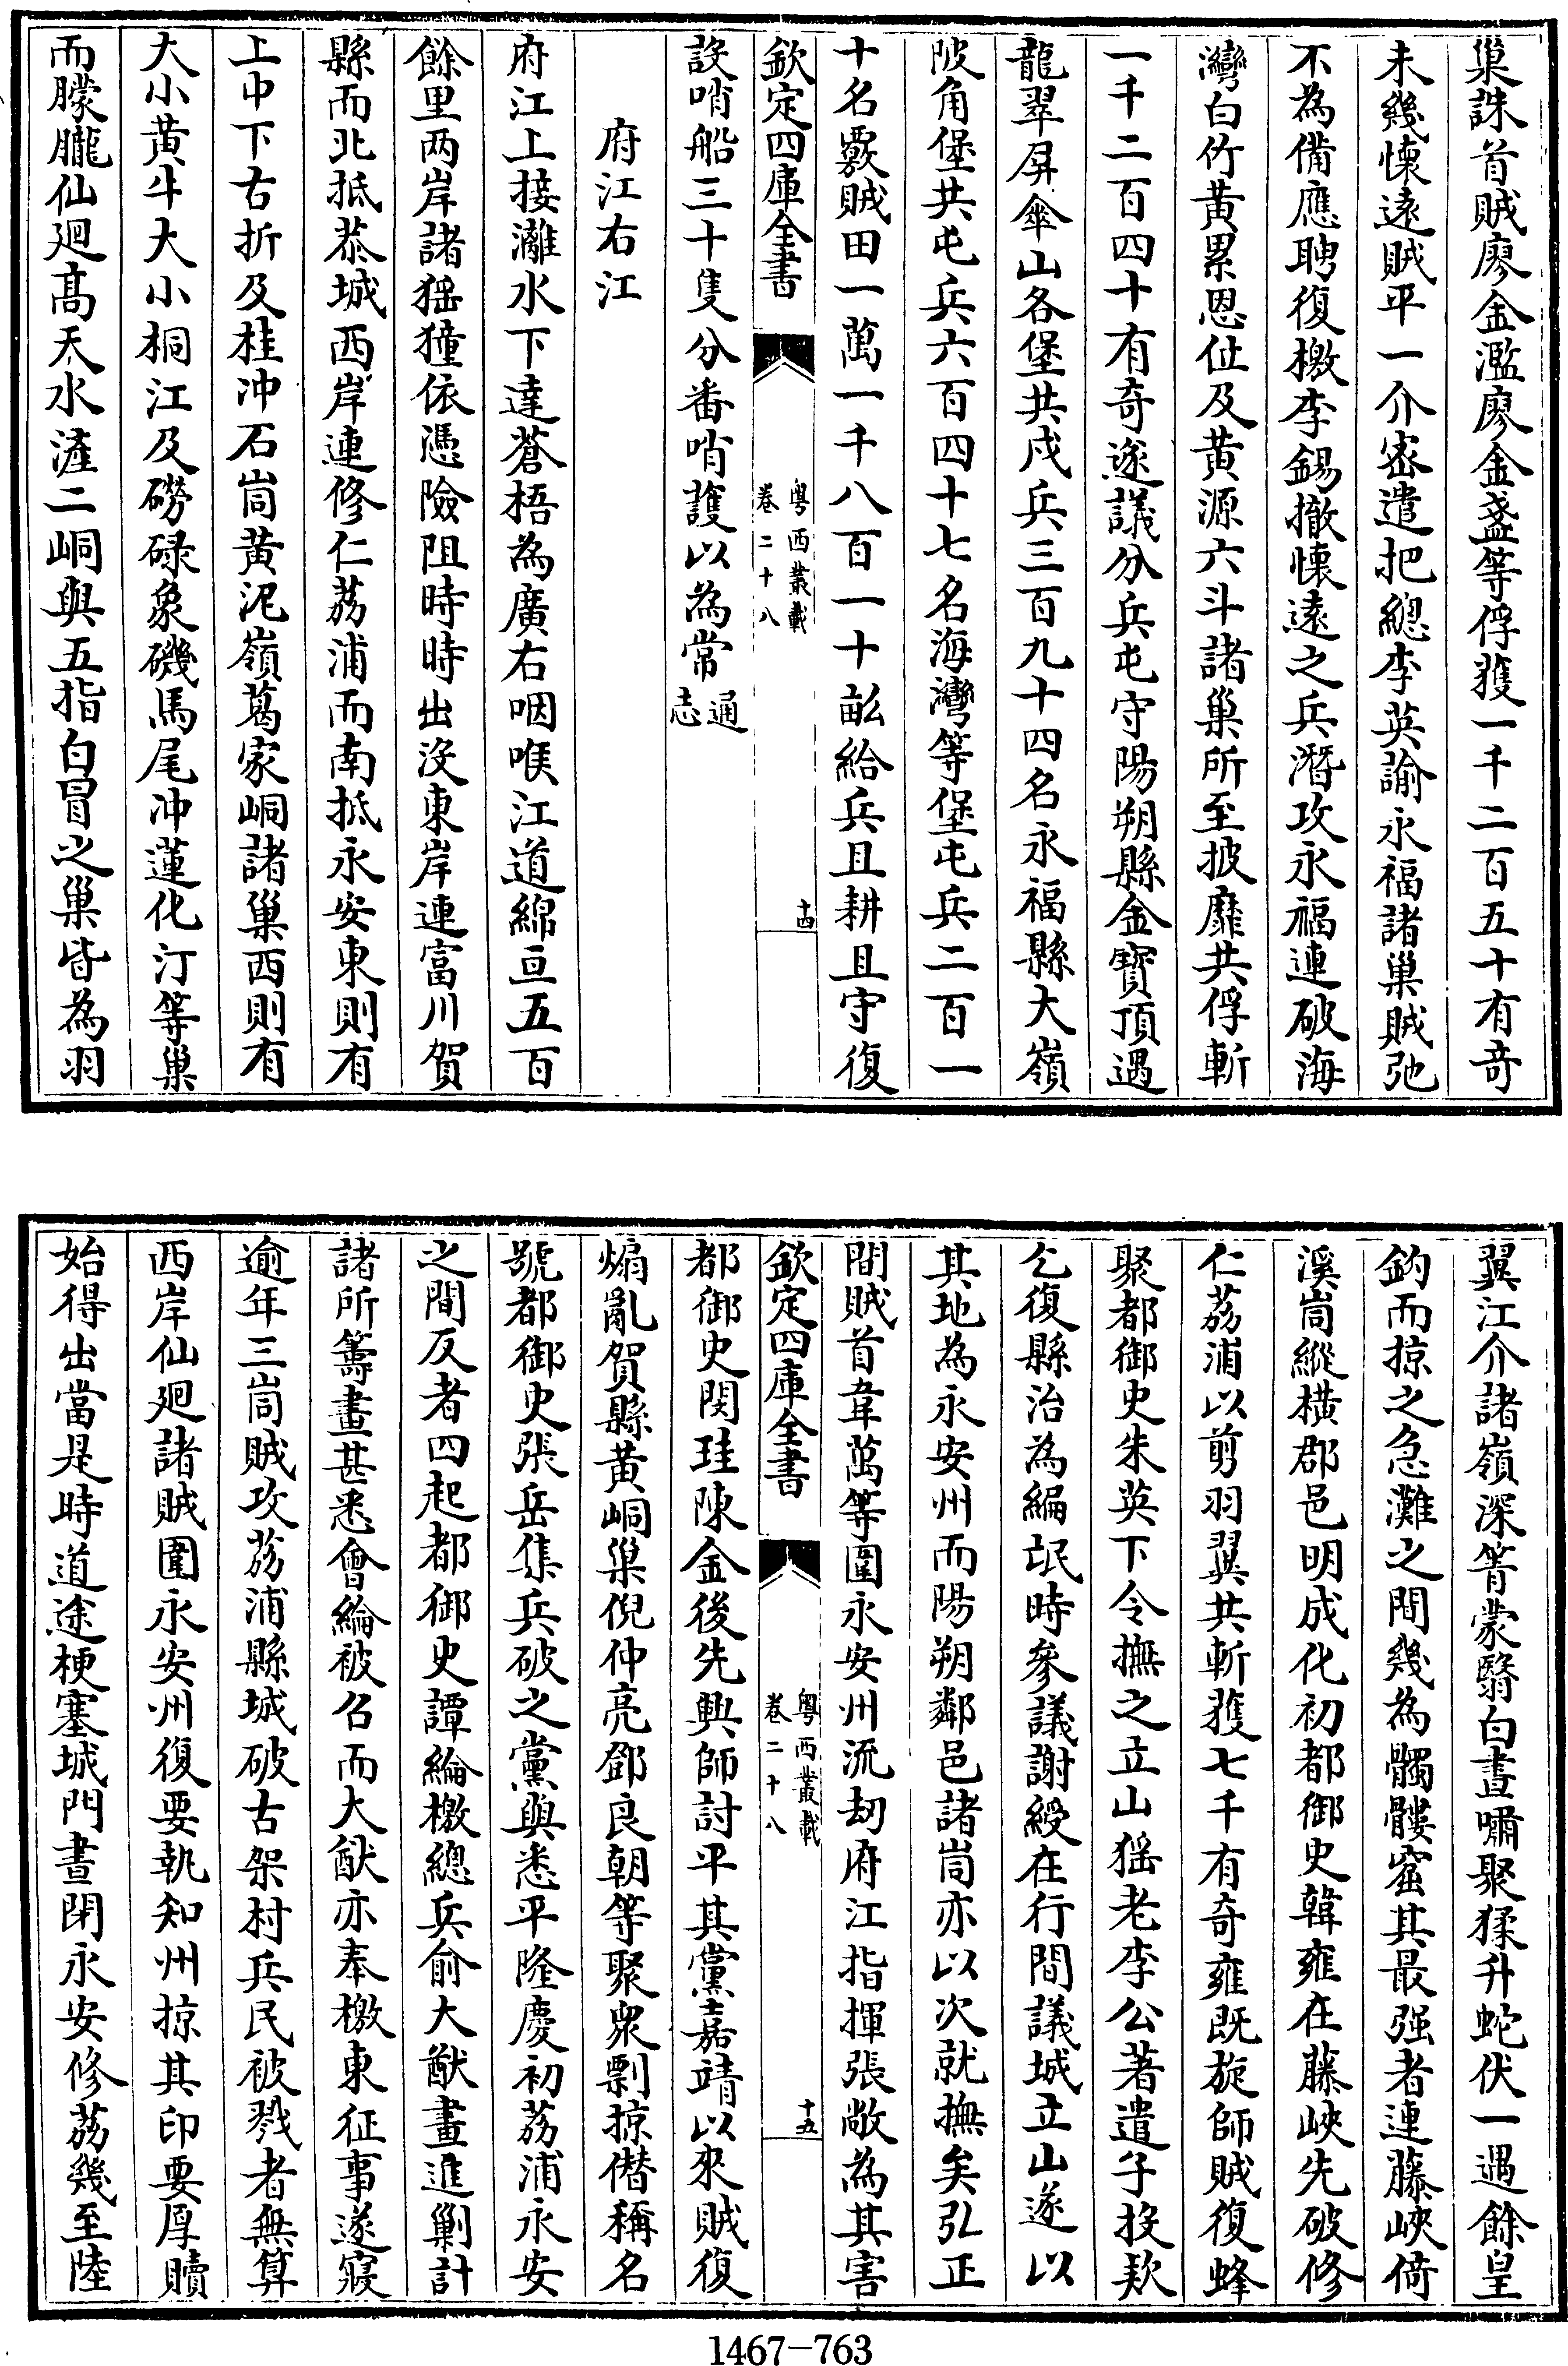 巢誅首賊廖金濫廖金盞等俘獲一千二百五十有奇
未幾懷遠賊平一介密遣把總李英諭永福諸巢賊弛
不為備應聘復檄李錫撤懷遠之兵潛攻永福連破海
灣白竹黃累恩位及黃源六斗諸巢所至披靡共俘斬
一千二百四十有奇遂議分兵屯守陽朔縣金寶頂遇
龍翠屏傘山各堡共戍兵三百九十四名永福縣大嶺
陂角堡共屯兵六百四十七名海灣等堡屯兵二百一
十名覈賊田一萬一千八百一十畝給兵且耕且守復
欽定四庫全書
粵西叢載
卷二十八
十四
設哨船三十隻分番哨護以為常通志
府江右江
府江上接灕水下達蒼梧為廣右咽喉江道綿亘五百
餘里两岸諸猺獞依憑險阻時時出沒東岸連富川賀
縣而北抵恭城西岸連修仁荔浦而南抵永安東則有
上中下右折及桂冲石峝黃泥嶺葛家峒諸巢西則有
大小黃牛大小桐江及磱碌象磯馬尾冲蓮化汀等巢
而朦朧仙廻高天水滻二峒與五指白冒之巢皆為羽
翼江介諸嶺深箐蒙翳白晝嘯聚猱升蛇伏一遇餘皇
鈎而掠之急灘之間幾為髑髏窟其最强者連藤峽倚
溪峝縱橫郡邑明成化初都御史韓雍在藤峽先破修
仁荔浦以剪羽翼共斬獲七千有奇雍既旋師賊復蜂
聚都御史朱英下令撫之立山猺老李公著遣子投款
乞復縣治為編氓時參議謝綬在行間議城立山遂以
其地為永安州而陽朔鄰邑諸峝亦以次就撫矣弘正
間賊首韋萬等圍永安州流刼府江指揮張敞為其害
欽定四庫全書
粵西叢載
卷二十八
十五
都御史閔珪陳金後先興師討平其黨嘉靖以來賊復
煽亂賀縣黃峒巢倪仲亮鄧良朝等聚衆剽掠僣稱名
號都御史張岳集兵破之黨與悉平隆慶初荔浦永安
之間反者四起都御史譚綸檄總兵俞大猷畫進剿計
諸所籌畫甚悉會綸被召而大猷亦奉檄東征事遂寢
逾年三峝賊攻荔浦縣城破古架村兵民被戮者無算
西岸仙廻諸賊圍永安州復要執知州掠其印要厚贖
始得出當是時道途梗塞城門晝閉永安修荔幾至陸
1467-763